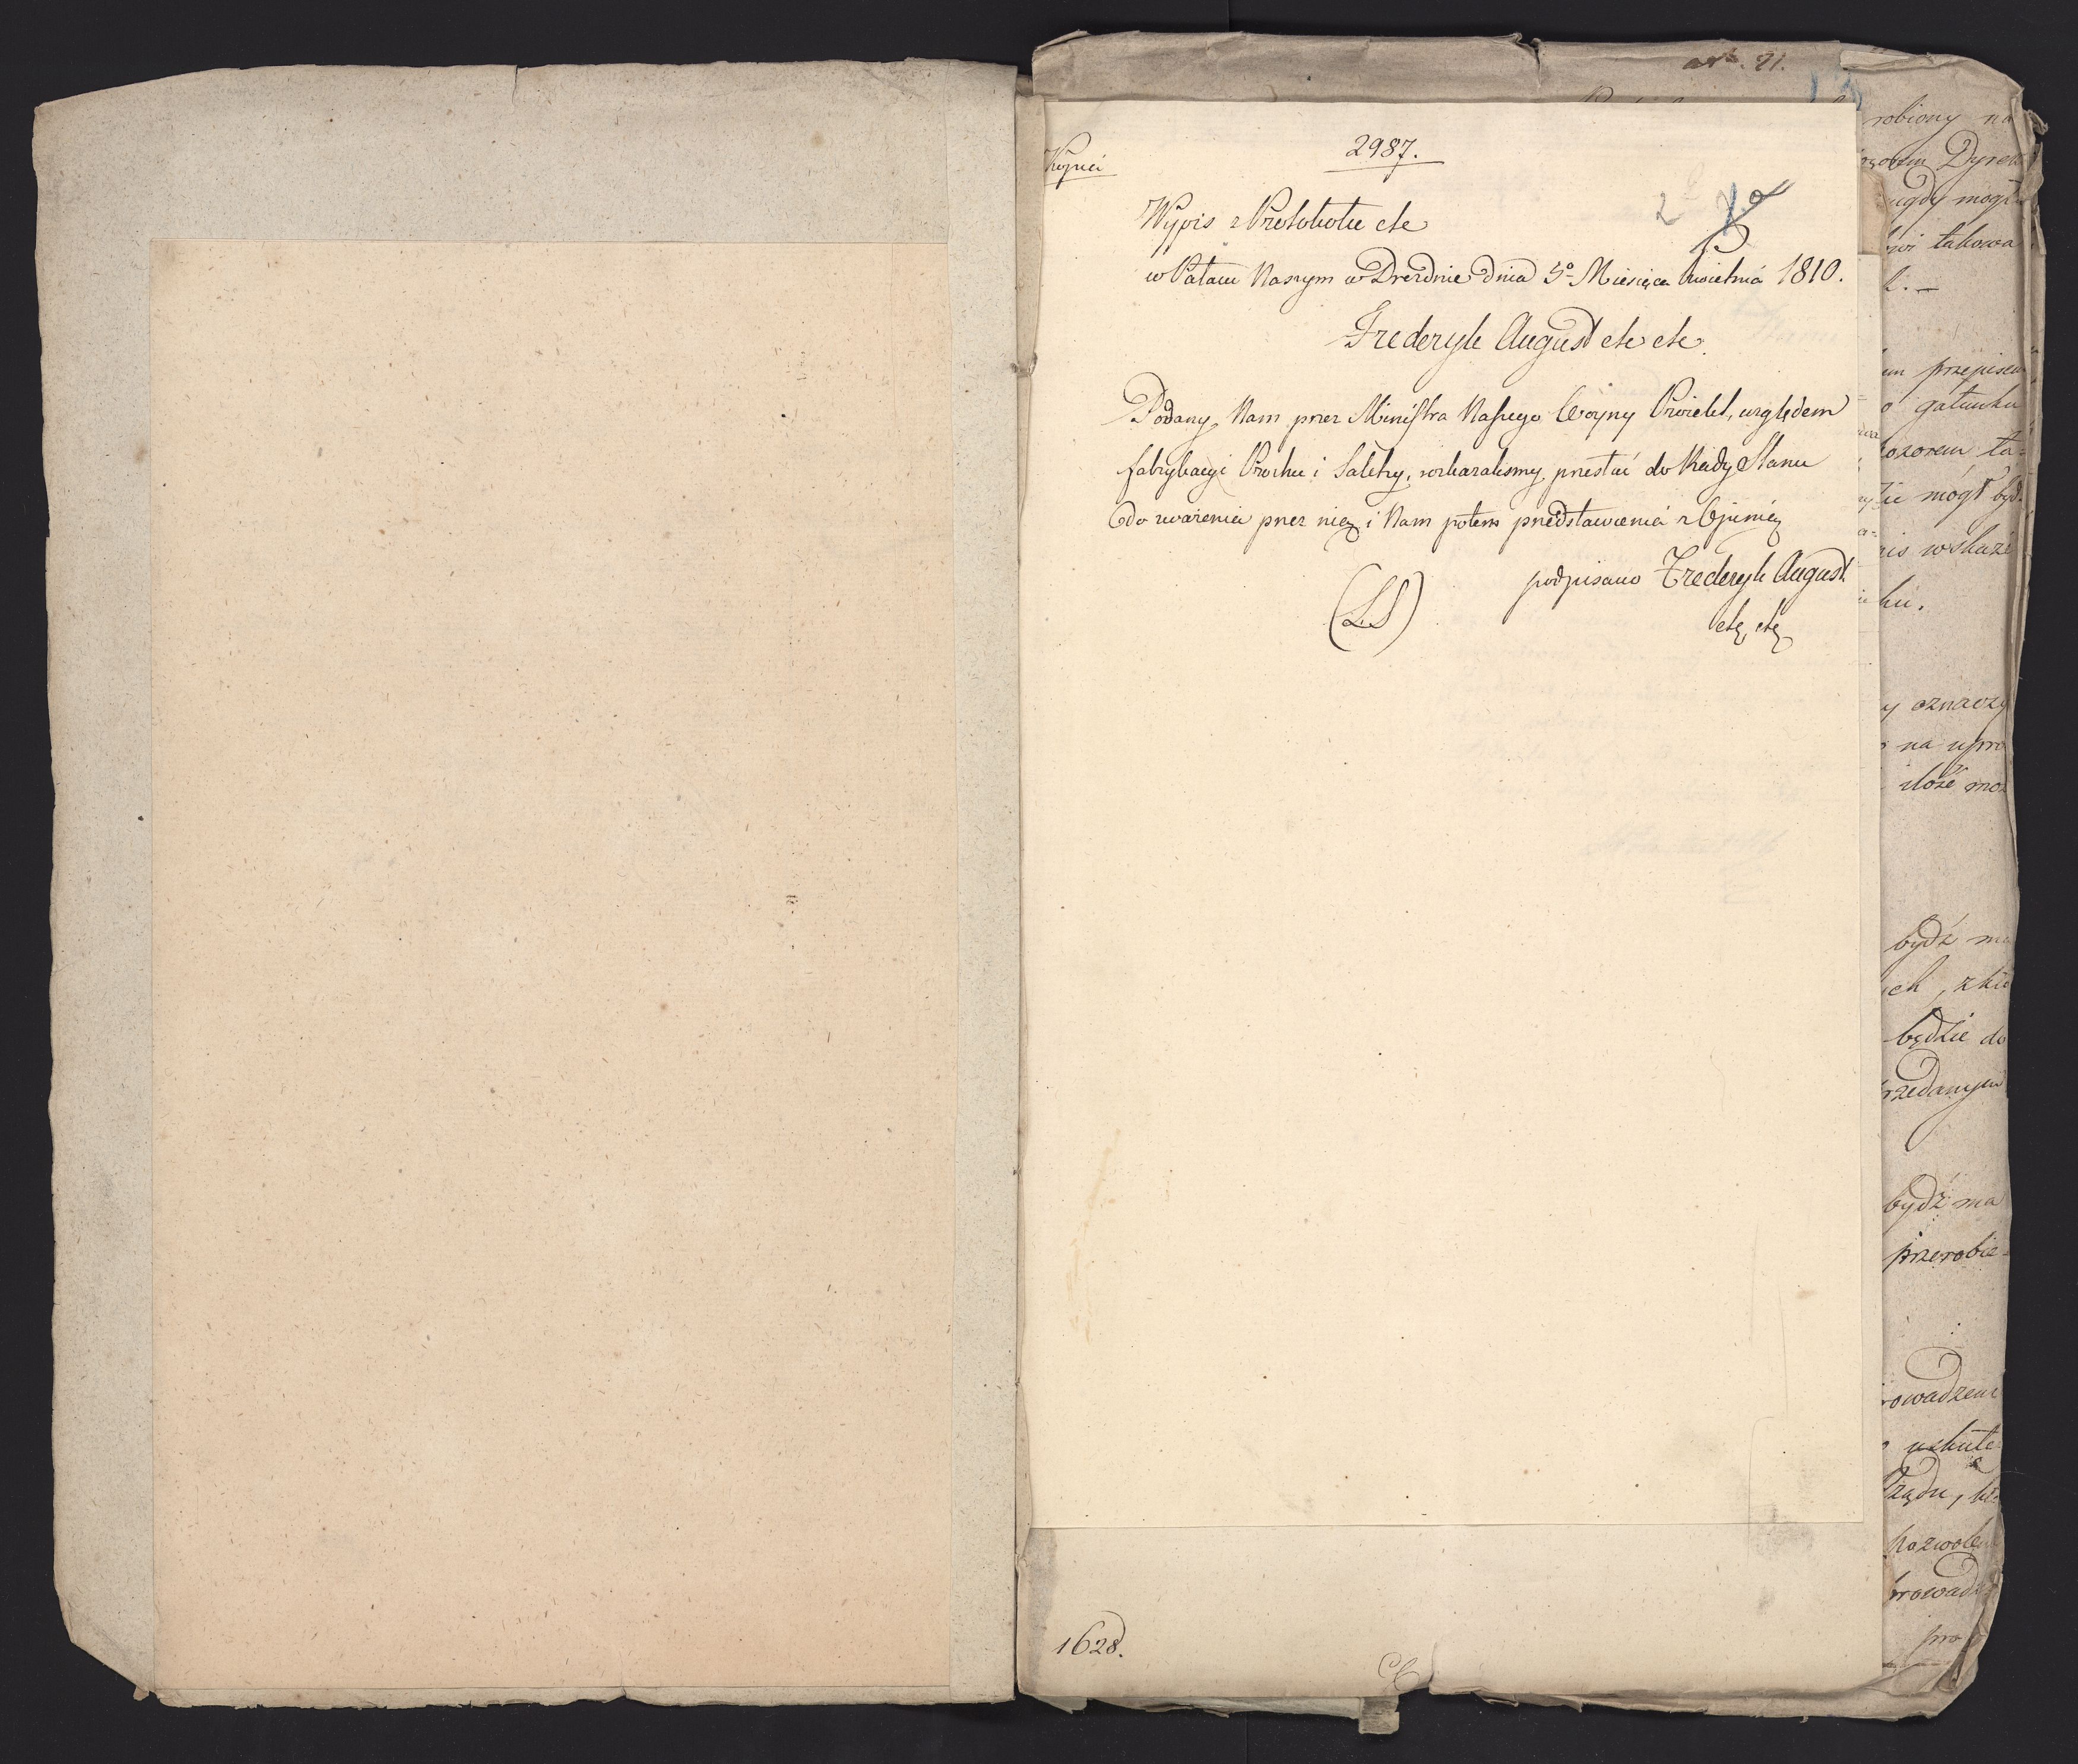 art. 21.
Kopia
2987.
2
Wypis z Protokołu etc
w Pałacu Naszym w Dreznie dnia 5º Miesiąca Kwietnia 1810.
Frederyk August etc etc.
Podany Nam przez Ministra Naszego Woyny Proiekt, względem
fabrykacyi Prochu i Saletry, rozkazalismy przesłać do Rady Stanu
do uważenia przez nię i Nam potem przedstawienia z Opinią
podpisano Frederyk August
(LS)
etc, etc
1628.
robiony na
Dyrek
mogł
takowa
przepisem
gatunku
dozorem ta=
mógł być
wskaże
na upro
być ma
będzie do
być ma
przerobie=
Rządu,
pozwole